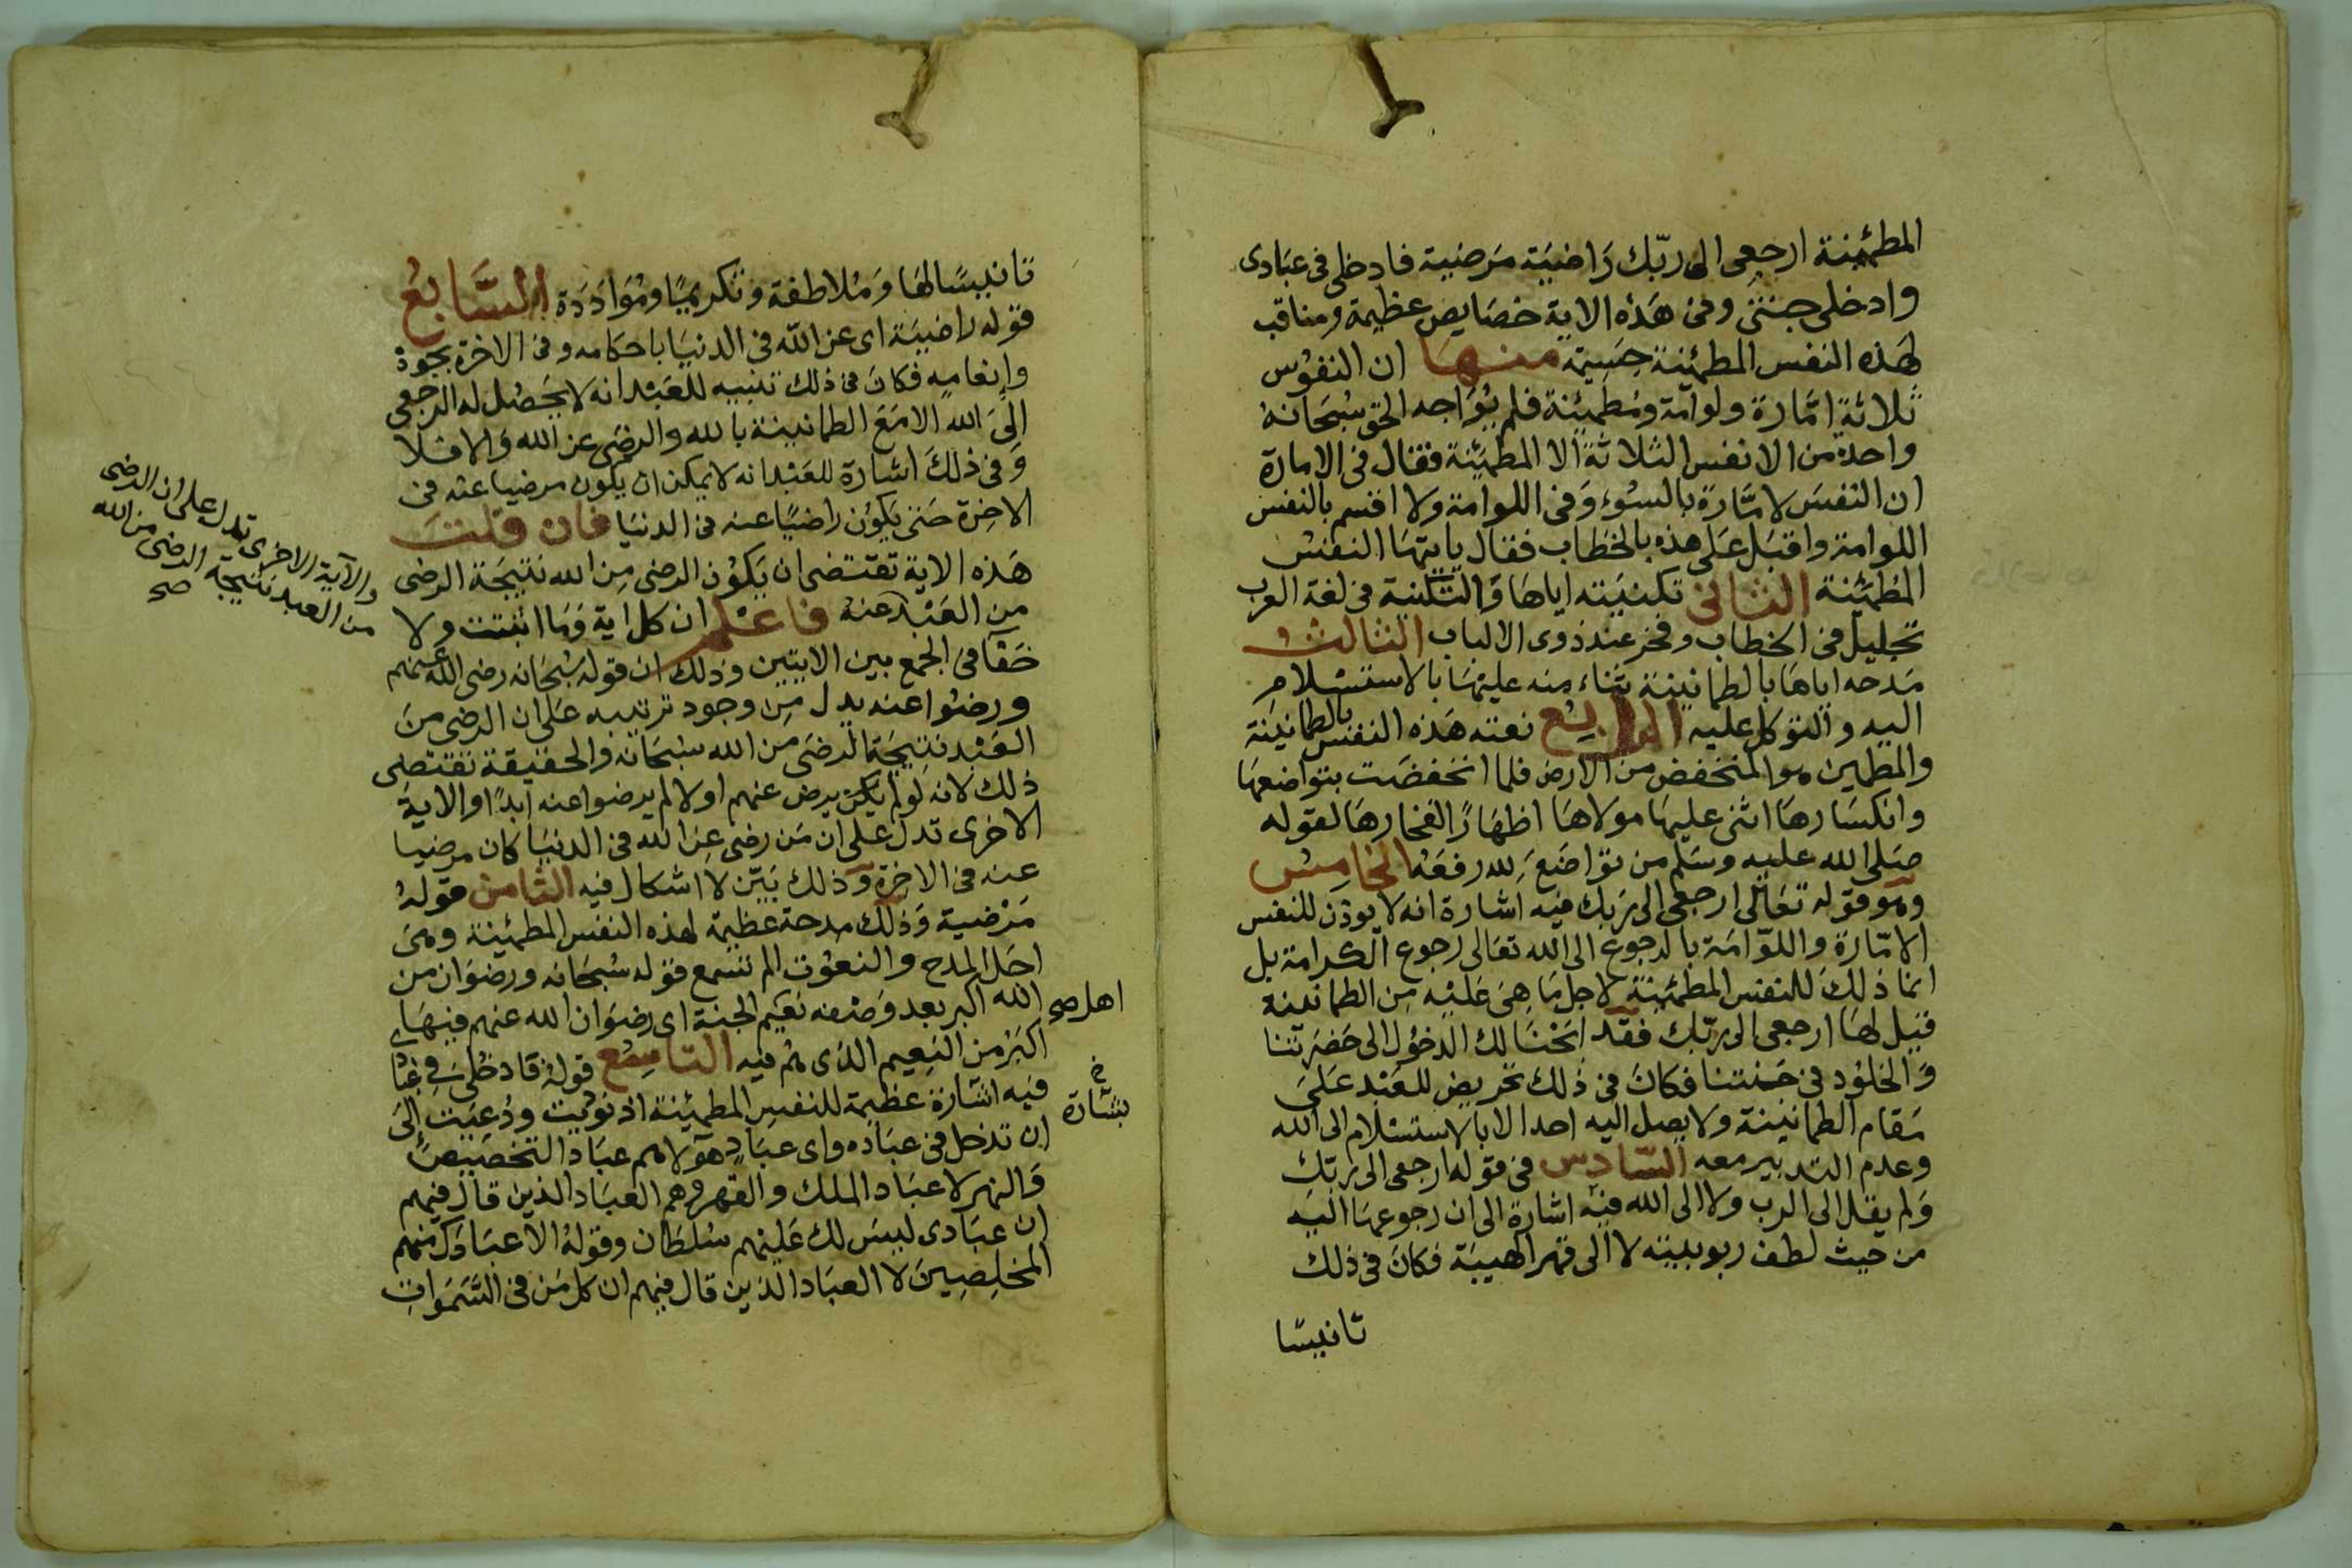 المطمئنة ارجعى الى ربّك رَاضيَة مَرضية فادخلى فى عبَادى
وادخلى جنتى وفى هَذه الاية خصَايص عظيمة ومناقب
لهَذه النفس المطمئنة جسيمة منهَا ان النفوُس
ثلاثة امّارة ولوامَة ومُطمئِنة فلم يُوَاجه الحق سُبحَانهُ
واحدة من الانفس الثلاثة الا المطمَئنة فقال فى الامارة
ان النفسَ لامَّارة بالسُوء وَفى اللوامة ولا اقسم بالنفس
اللوامة واقبَل عَلى هذه بالخطاب فقال يايتهَا النفسُ
المُطمَئِنة الثانى تكنيَته اياهَا وَالتكنية فى لغة العرب
تجليل فى الخطاب وفخر عند ذوى الالباب الثالث
مَدحه اياهَا بالطمانينة بثناء منه عليهَا بالاستسْلامِ
اليه والتوكل عليه الرابِعُ نعته هَذه النفس بالطمانينَة
والمطمين هو المنخفض من الارض فلما انخفضَت بتواضعهَا
وانكسَارهَا اثنى عليهَا مولاهَا اظهَارًا لفخارهَا لقوله
صَلى الله عليه وسَلم من تواضَعَ لله رفعَهُ الخامِسُ
وهو قوله تعَالى ارجعى الى رَبك فيه اشارة انه لا يوذن للنفس
الامّارة واللوّامَة بالرجوع الى الله تعَالى رجوع الكرامة بل
انما ذلكَ للنفس المطمئِنِة لاجل مَا هِىَ عَليْه مِن الطمانينة
قيل لهَا ارجعى الى ربّك فقد ابَحْنَا لك الدخوُل الى حَضرَتنا
وَالخلوُد فى جَنتنا فكانَ فى ذلك تحريض للعَبْد عَلىَ
مَقام الطمانينة ولا يصل اليه احدا لا بالاستسْلام الى الله
وعدم التدبير معه السّادِس فى قوله ارجعى الى ربّك
وَلم يقل الى الرب ولا الى الله فيْه اشارة الى ان رجوعهَا اليَه
من حيث لطف ربوبيته لا الى قهر الهيبَة فكانَ فى ذلك
تانيسًا
تانيسًا لهَا وَمُلاطفة وتكريمًا ومُوَادَدَة السَّابعُ
قوله راضيَة اى عن الله فى الدنيَا باحكامه وفى الاخرة بجوده
وانعَامِه فكانَ فى ذلك تنبيه للعَبْد انه لا يَحصُل له الرجعى
الىَ الله الا مَعَ الطمانينة بالله والرضى عن الله وَالا فلا
وَفى ذلكَ اشارة للعَبْد انه لا يمكن ان يكون مرضيا عنه فى
الاخِرة حَتى يكوُن راضيًا عنه فى الدنيَا فان قلتَ
هَذه الاية تقتضى ان يَكوُن الرضى مِن الله نتيجَة الرضى
من العَبْد عنهُ فاعْلم ان كل اية وَمَا اثبتت ولا
خَفا فى الجمع بين الايتين وذلك ان قوله سُبحَانه رضى الله عنهم
ورضوُا عنه يدل مِن وجود ترتيبه عَلى ان الرضى مِنَ
العَبْد نتيجَة الرضىَ من الله سُبحَانه والحقيقة تقتضى
ذلك لانه لو لم يكن يرض عنهم اولا لم يرضوا عنه ابدًا والايةَ
الاخرى تدل على ان مَن رضى عِن الله فى الدنيَا كان مرضيا
عنه فى الاخِرة وَذلك بَيّن لا اشكال فيه الثامن قولهُ
مَرْضية وَذلك مدحة عظيمة لهذه النفس المطمئينة وهىَ
اجَل المدح والنعوُت الم تسمع قوله سُبحَانه ورضوَان من
الله اكبر بعد وَصْفه نعَيم الجنة اى رضوَان الله عنهم فيهَا
اكبَرُ من النعِيم الذى هم فيه التاسِعُ قولهُ فادخُلىِ فِى عِبَا
فيه اشارة عظيمة للنفسِ المطمئِنة اذ نودُيت ودُعِيَت الىَ
ان تدخل فى عبَاده واى عبَادٍ هوَلا هم عبَاد التخصيصِ
وَالنصر لا عبَاد الملك والقهر وهم العبَاد الذين قال فيهم
ان عبَادى ليسَ لك عَليْهم سُلطان وقولهُ الا عبَادَك منهم
المخلِصِينَ لا العبَاد الذين قال فيهم ان كل مَن فى السَّمَواتِ
والآية الاخرى تدل على ان الرضى
من العبد نتيجة الرضى من الله
صح
اهل صح
بشارة خ